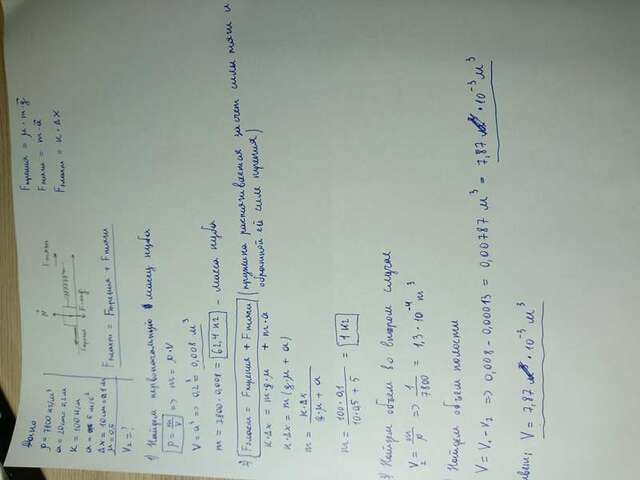 Дано
ρ = 7800 кг/м³
a = 20см = 0,2м
K = 100 Н/м
a = 5 м/с²
Δx = 10см = 0,1м
μ = 0,5
V₂ = ?
N
Fтяги
Fтрения
Fупр
Fэласт = Fтрения + Fтяги
Fтрения = μ · m · g
Fтяги = m · a
Fэласт = K · Δx
1) Найдем первоначальную массу куба
ρ = m/V => m = ρ · V
V = a³ => 0,2³ = 0,008 м³
m = 7800 · 0,008 = 62,4 кг - масса куба
2) Fэласт = Fтрения + Fтяги (пружинка растягивается за счет силы тяги и
обратной ей силе трения)
K · Δx = m · g · μ + m · a
K · Δx = m (g · μ + a)
m = K · Δx / g · μ + a
m = 100 · 0,1 / 10 · 0,5 + 5 = 1 кг
3) Найдем объем во втором случае
V₂ = m/ρ => 1/7800 = 1,3 · 10⁻⁴ m³
Найдем объем полости
V = V₁ - V₂ => 0,008 - 0,00013 = 0,00787 м³ = 7,87 · 10⁻³ м³
вет: V = 7,87 · 10⁻³ м³